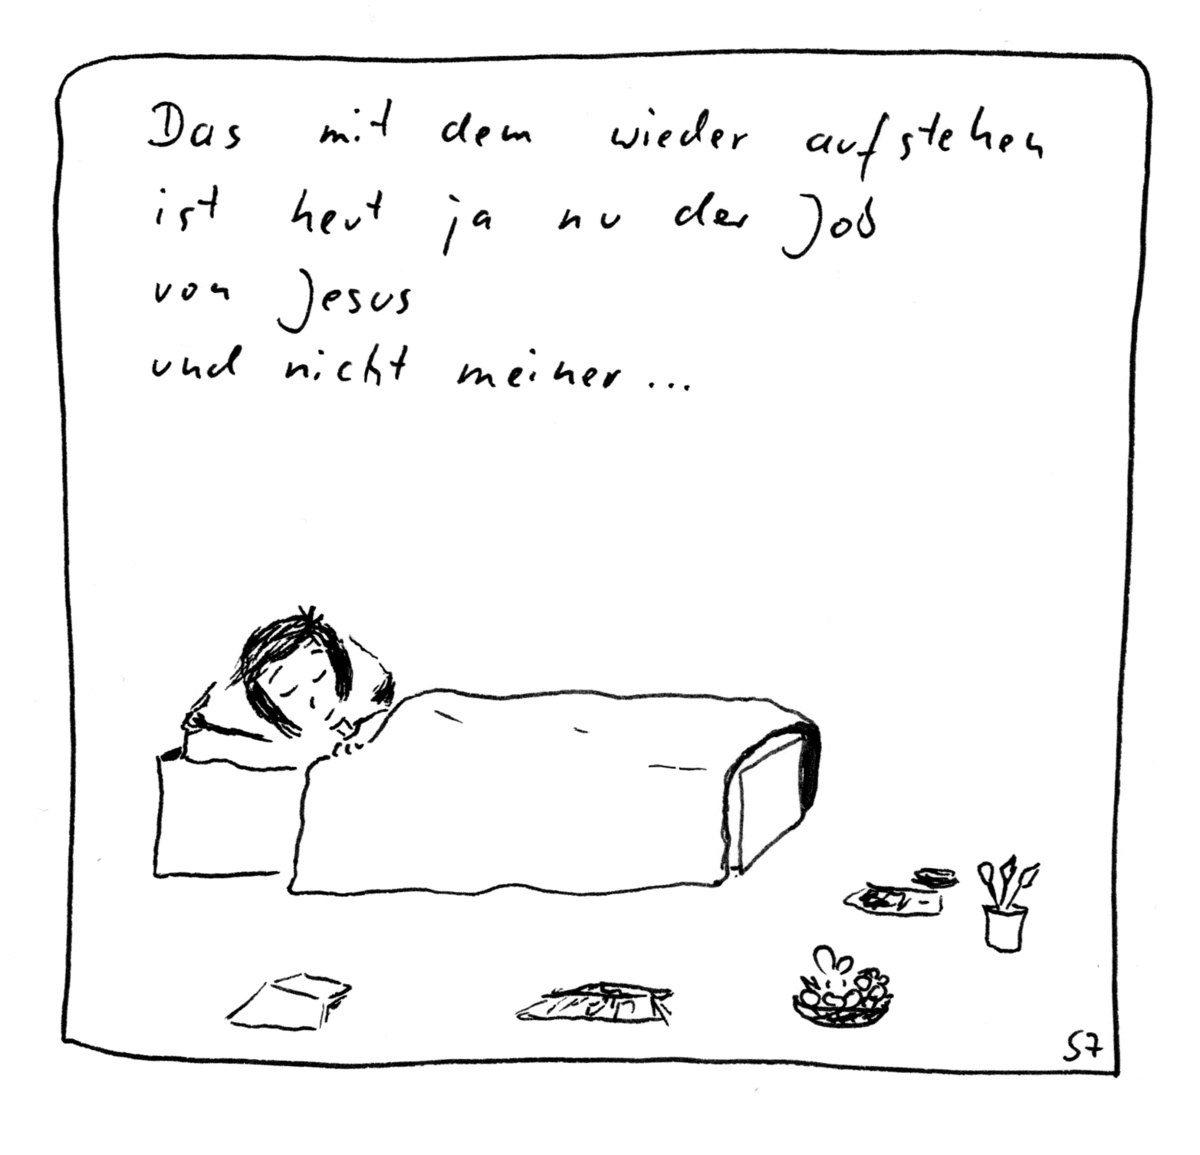 Das mit dem wieder aufstehen
ist heut ja nu der Job
von Jesus
und nicht meiner...
S7